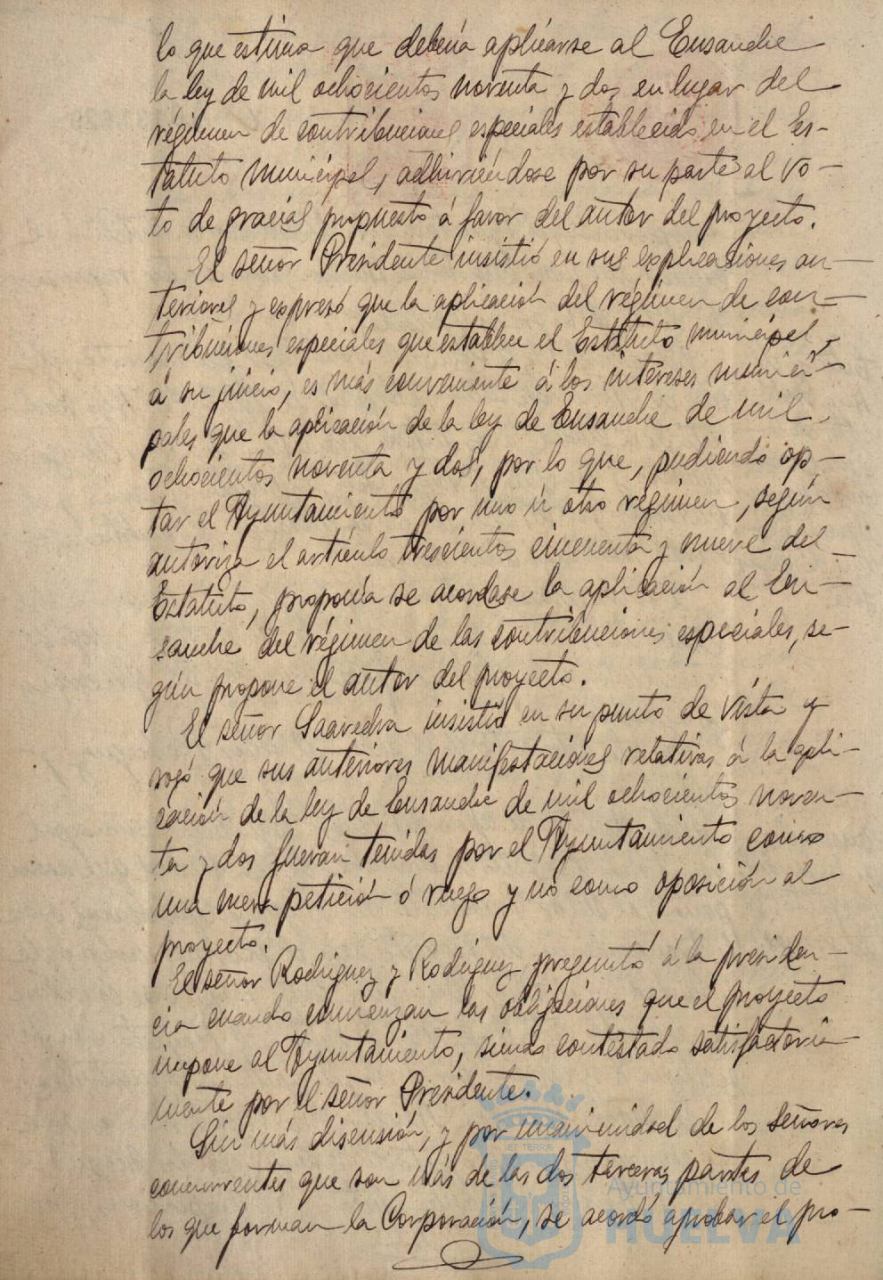 lo que estima que debería aplicarse al Ensanche
la ley de mil ochocientos noventa y dos en lugar del
régimen de contribuciones especiales establecido en el Es-
tatuto municipal, adhiriéndose por su parte al vo-
to de gracias propuesto á favor del autor del proyecto.
El señor Presidente insistió en sus explicaciones an-
teriores y expresó que la aplicación del régimen de con-
tribuciones especiales que establece el Estatuto municipal,
á su juicio, es más conveniente á los intereses munici-
pales que la aplicación de la ley de Ensanche de mil
ochocientos noventa y dos, por lo que, pudiendo op-
tar el Ayuntamiento por uno ú otro régimen, según
autoriza el artículo trescientos cincuenta y nueve del
Estatuto, proponía se acordase la aplicación al En-
sanche del régimen de las contribuciones especiales, se-
gún propone el autor del proyecto.
El señor Saavedra insistió en su punto de vista y
rogó que sus anteriores manifestaciones relativas á la apli-
cación de la ley de Ensanche de mil ochocientos noven-
ta y dos fueran tenidas por el Ayuntamiento como
una mera petición ó ruego y no como oposición al
proyecto.
El señor Rodríguez y Rodríguez preguntó á la presiden-
cia cuando comienzan las obligaciones que el proyecto
impone al Ayuntamiento, siendo contestado satisfactoria-
mente por el señor Presidente.
Sin más discusión, y por unanimidad de los señores
concurrentes que son más de las dos terceras partes de
los que forman la Corporación, se acordó aprobar el pro-
Ayuntamiento de
HUELVA